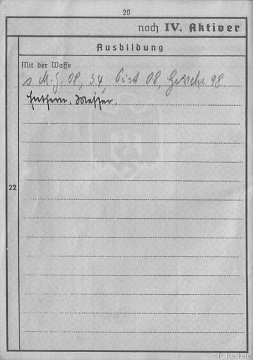 20
noch IV. Aktiver
Ausbildung
Mit der Waffe
s. M. G. 08, 34, Pist 08, Gewehr 98
Entfern. Messer.
22